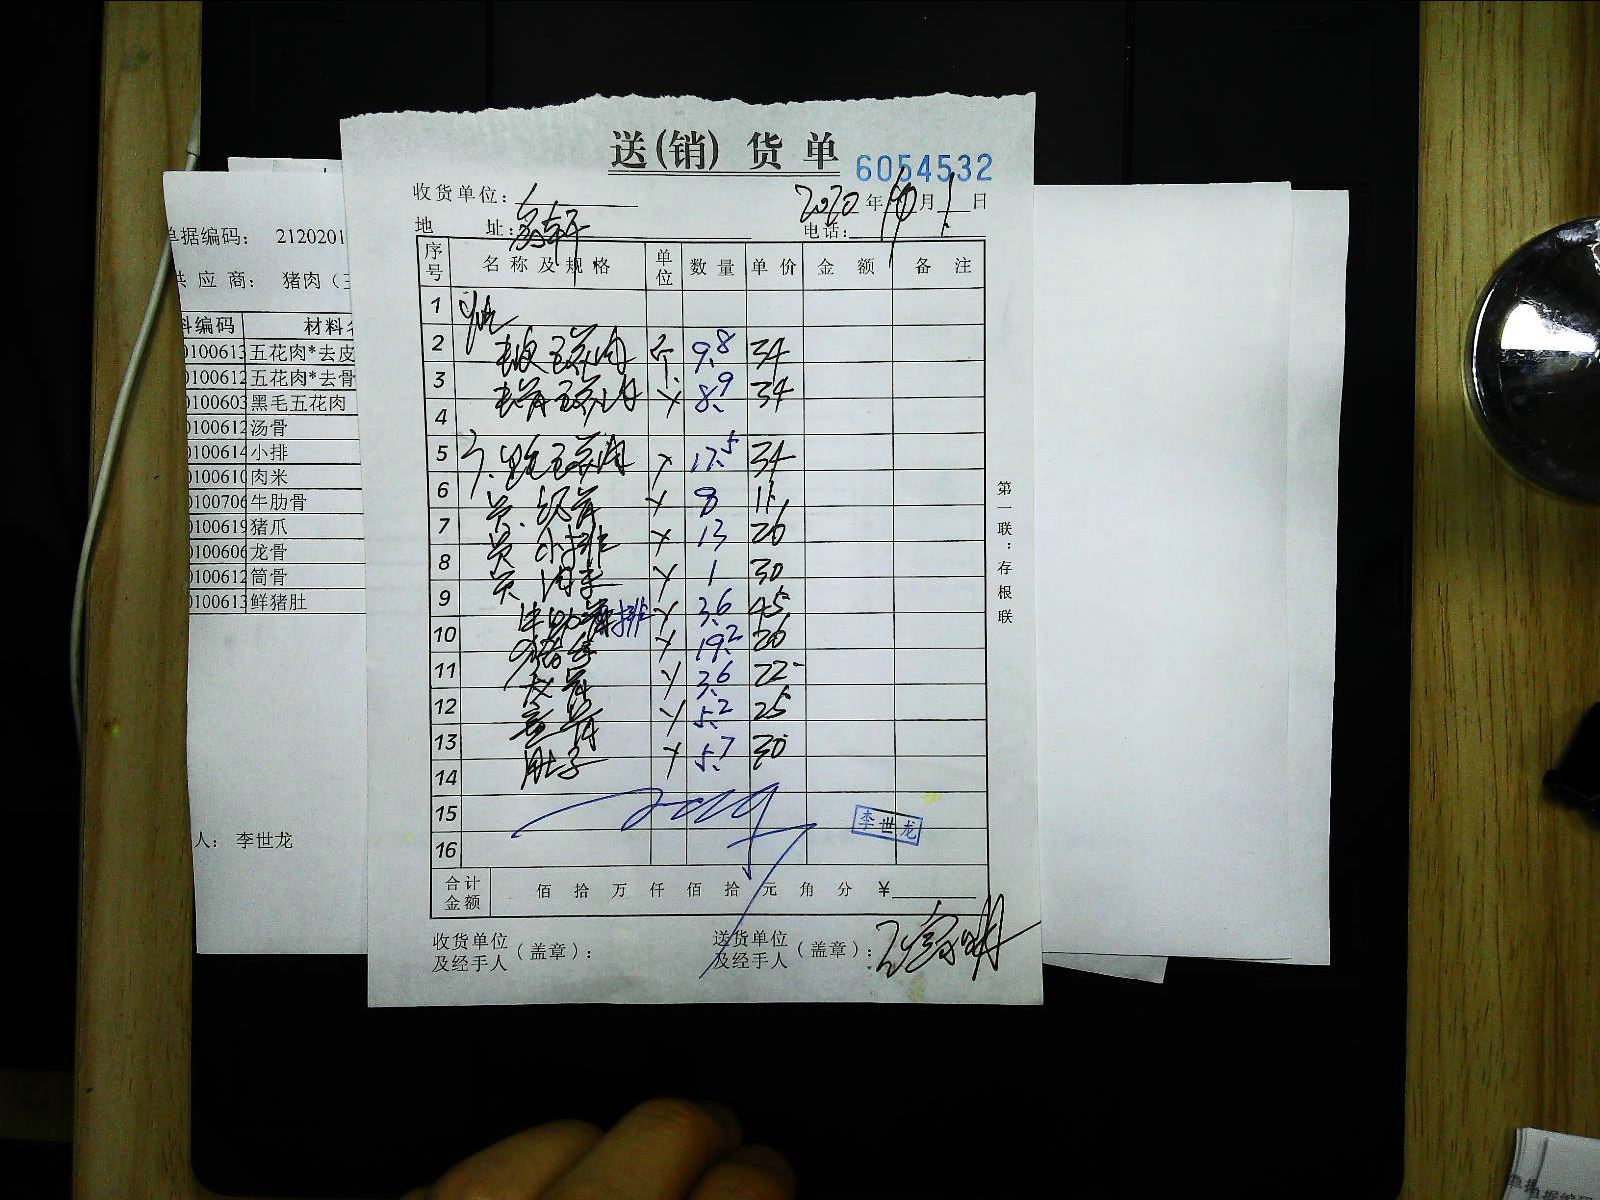 送(销)货单
6054532
收货单位：
2020年10月1日
地 址：
电话：
序号 名称及规格 单位 数量 单价 金额 备注
1
2 去皮五花肉 个 9.8 34
3 去骨五花肉 8.9 34
4
5 黑毛五花肉 17.5 34
6 汤骨 8 11
7 小排 13 26
8 1 30
9 牛肋骨排 3.6 45
10 猪手 19.2 20
11 龙骨 3.6 22
12 筒骨 5.2 25
13 肚子 5.7 30
14
15
李世龙
16
合计金额 佰 拾 万 仟 佰 拾 元 角 分 ¥
收货单位及经手人（盖章）：
送货单位及经手人（盖章）：
第一联：存根联
单据编码： 2120201
供 应 商： 猪肉（
料编码 材料
0100613 五花肉*去皮
0100612 五花肉*去骨
0100603 黑毛五花肉
0100612 汤骨
0100614 小排
0100610 肉米
0100706 牛肋骨
0100619 猪爪
0100606 龙骨
0100612 筒骨
0100613 鲜猪肚
人： 李世龙